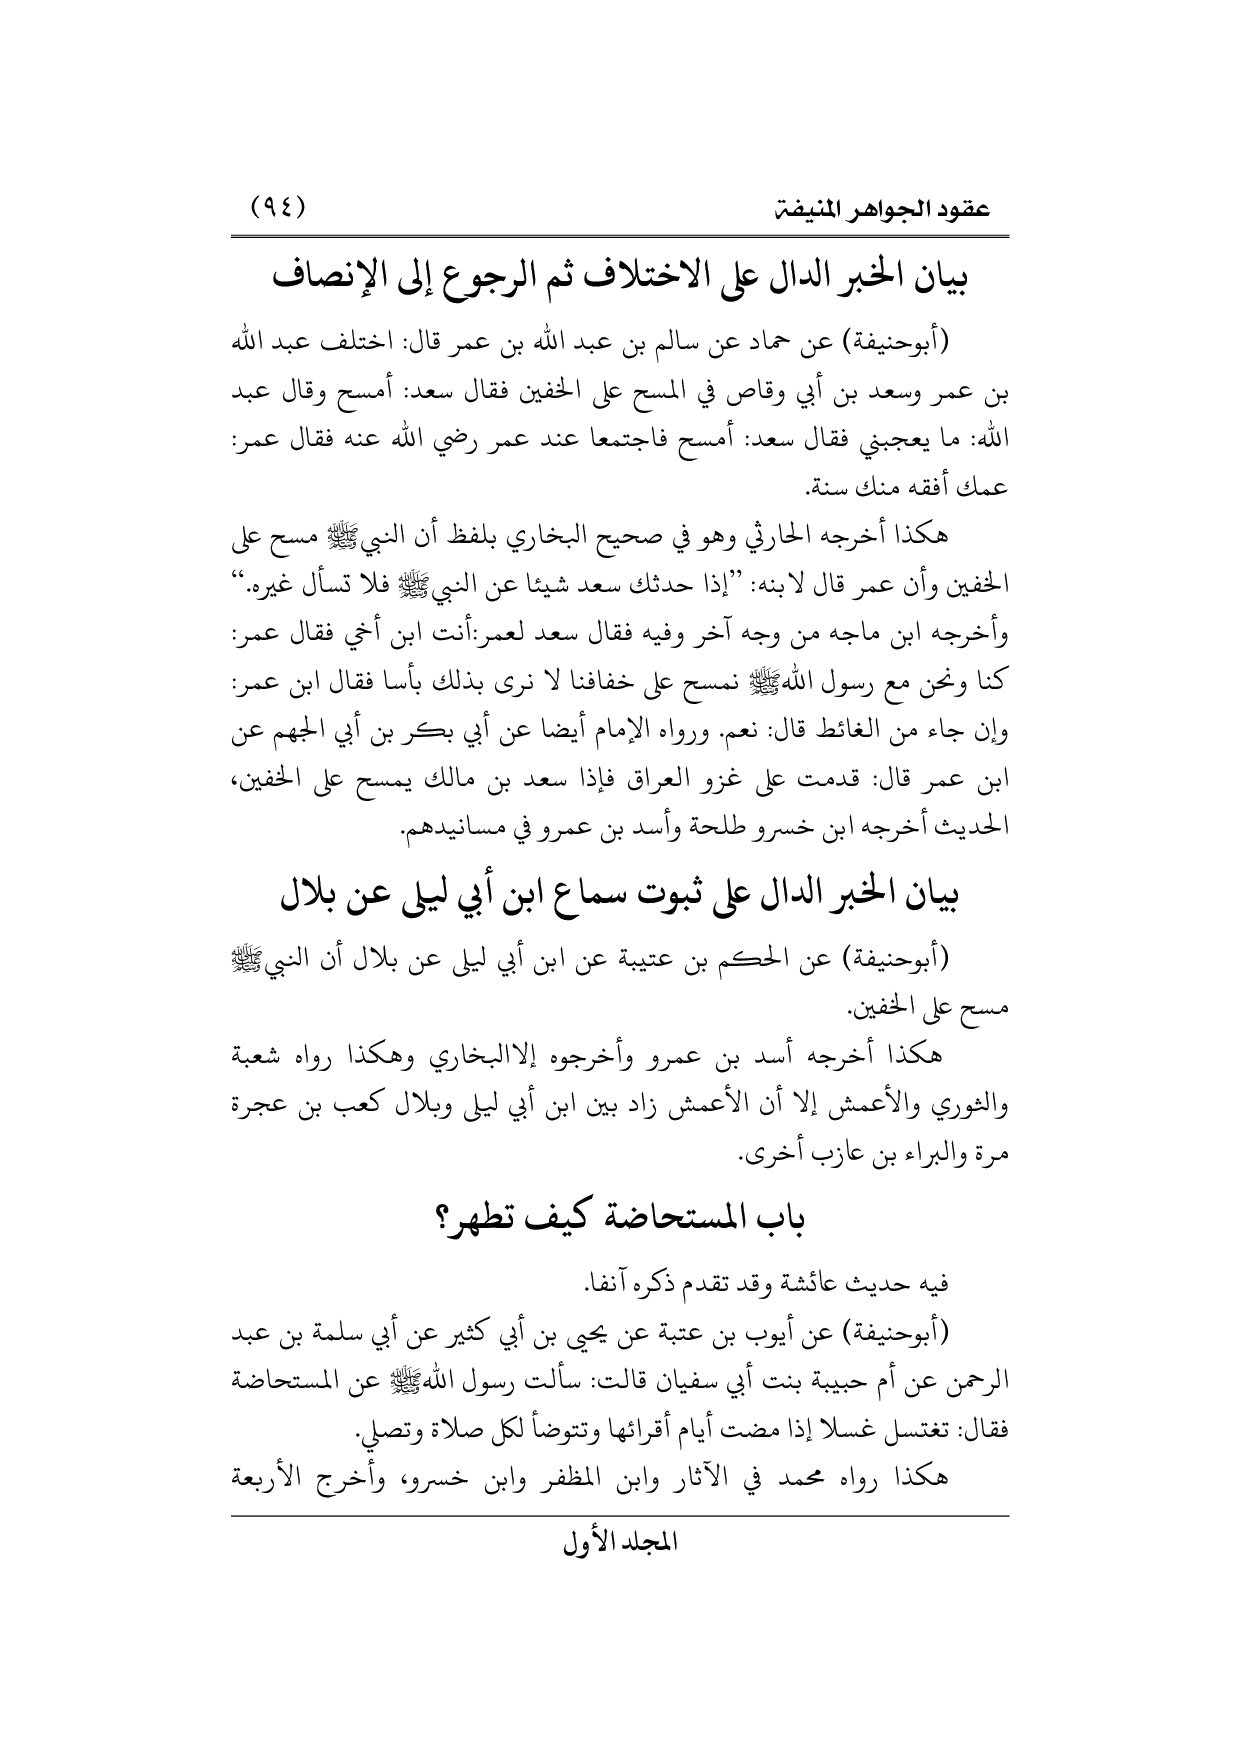 عقود الجواهر المنيفة (٩٤)
بيان الخبر الدال على الاختلاف ثم الرجوع إلى الإنصاف
(أبوحنيفة) عن حماد عن سالم بن عبد الله بن عمر قال: اختلف عبد الله
بن عمر وسعد بن أبي وقاص في المسح على الخفين فقال سعد: أمسح وقال عبد
الله: ما يعجبني فقال سعد: أمسح فاجتمعا عند عمر رضي الله عنه فقال عمر:
عمك أفقه منك سنة.
هكذا أخرجه الحارثي وهو في صحيح البخاري بلفظ أن النبيﷺ مسح على
الخفين وأن عمر قال لابنه: ”إذا حدثك سعد شيئا عن النبيﷺ فلا تسأل غيره.“
وأخرجه ابن ماجه من وجه آخر وفيه فقال سعد لعمر:أنت ابن أخي فقال عمر:
كنا ونحن مع رسول اللهﷺ نمسح على خفافنا لا نرى بذلك بأسا فقال ابن عمر:
وإن جاء من الغائط قال: نعم. ورواه الإمام أيضا عن أبي بكر بن أبي الجهم عن
ابن عمر قال: قدمت على غزو العراق فإذا سعد بن مالك يمسح على الخفين،
الحديث أخرجه ابن خسرو طلحة وأسد بن عمرو في مسانيدهم.
بيان الخبر الدال على ثبوت سماع ابن أبي ليلى عن بلال
(أبوحنيفة) عن الحكم بن عتيبة عن ابن أبي ليلى عن بلال أن النبيﷺ
مسح على الخفين.
هكذا أخرجه أسد بن عمرو وأخرجوه إلاالبخاري وهكذا رواه شعبة
والثوري والأعمش إلا أن الأعمش زاد بين ابن أبي ليلى وبلال كعب بن عجرة
مرة والبراء بن عازب أخرى.
باب المستحاضة كيف تطهر؟
فيه حديث عائشة وقد تقدم ذكره آنفا.
(أبوحنيفة) عن أيوب بن عتبة عن يحيى بن أبي كثير عن أبي سلمة بن عبد
الرحمن عن أم حبيبة بنت أبي سفيان قالت: سألت رسول اللهﷺ عن المستحاضة
فقال: تغتسل غسلا إذا مضت أيام أقرائها وتتوضأ لكل صلاة وتصلي.
هكذا رواه محمد في الآثار وابن المظفر وابن خسرو، وأخرج الأربعة
المجلد الأول